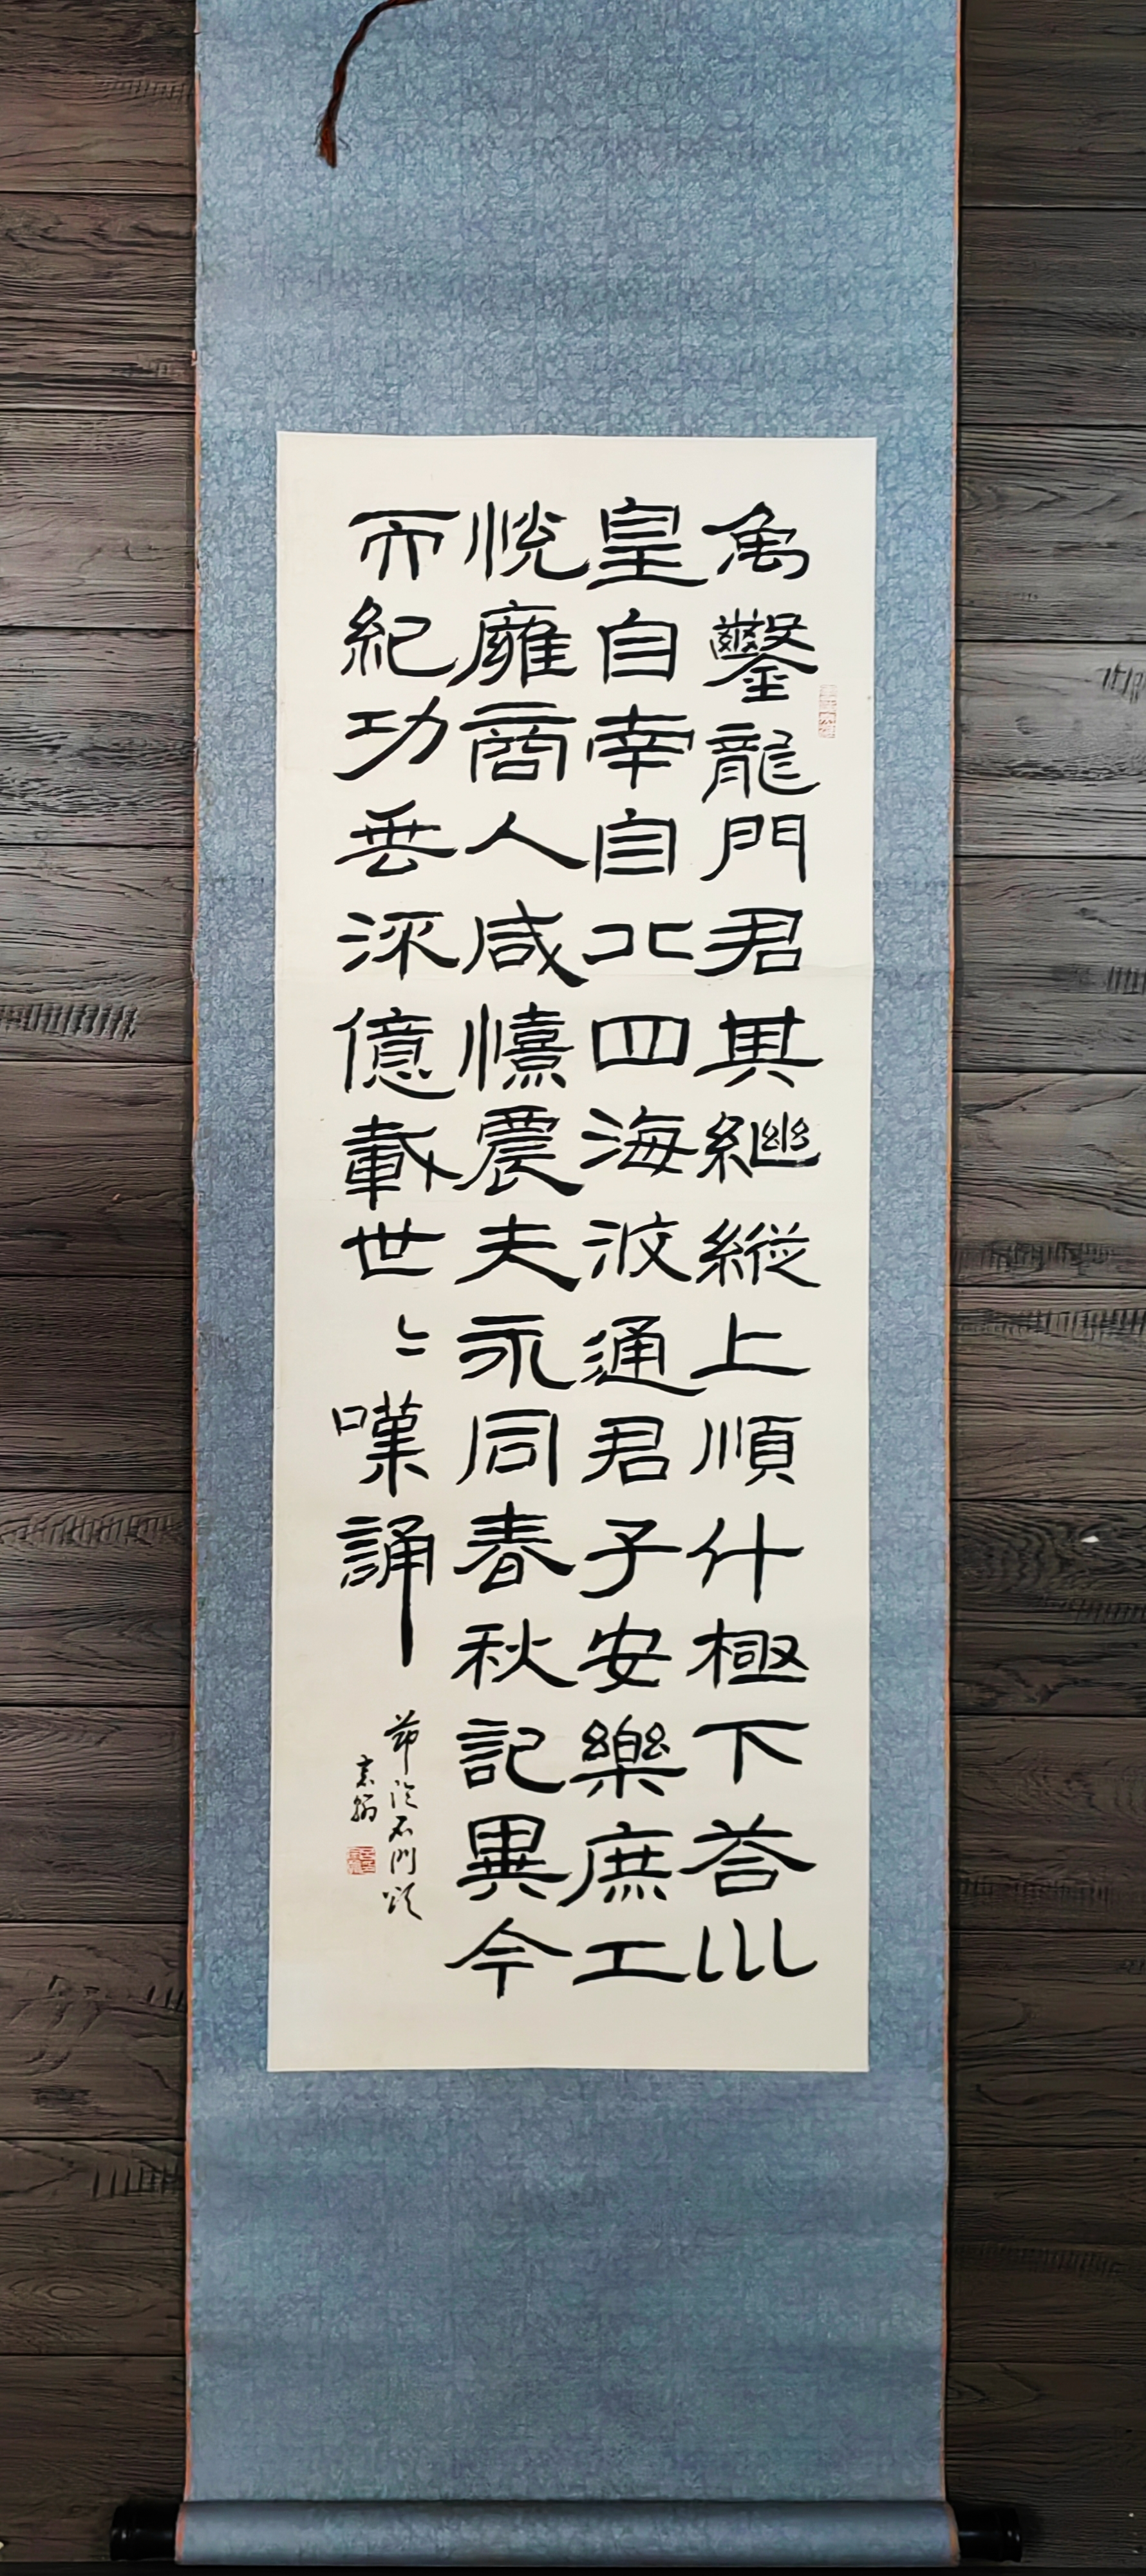 禹鑿龍門君其繼縱上順什極下荅巛
皇自南自北四海攸通君子安樂庶工
悅雍商人咸憘農夫永同春秋記異今
而紀功垂流億載世〻嘆誦
節臨石門頌